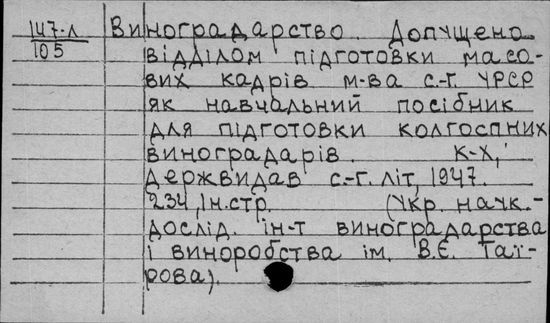 147-Л Виноградарство. Допущено
105 відділом підготовки масо-
вих кадрів м-ва с.-г. УРСР
як навчальний посібник
для підготовки колгоспних
виноградарів. К-Х,
Держвидав с.-г. літ, 1947.
234, Ін.стр. (Укр. наук.-
дослід. ін-т виноградарства
і виноробства ім. В.Є. Таї-
рова).